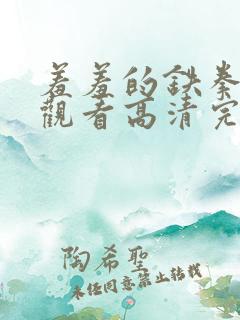 羞羞的鉄拳
觀看高清完
陶希聖
未经同意禁止转载